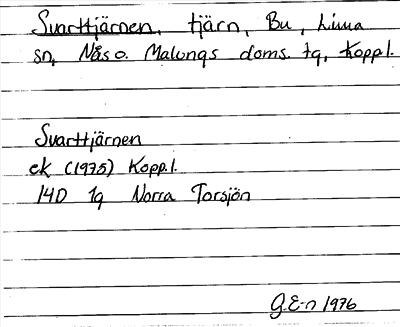 Svarttjärnen, tjärn, Bu, Lima
sn, Nås o. Malungs doms. tg, Kopp.l.
Svarttjärnen
ek (1975) Kopp.l.
14D 1g Norra Torsjön
G.E-n 1976